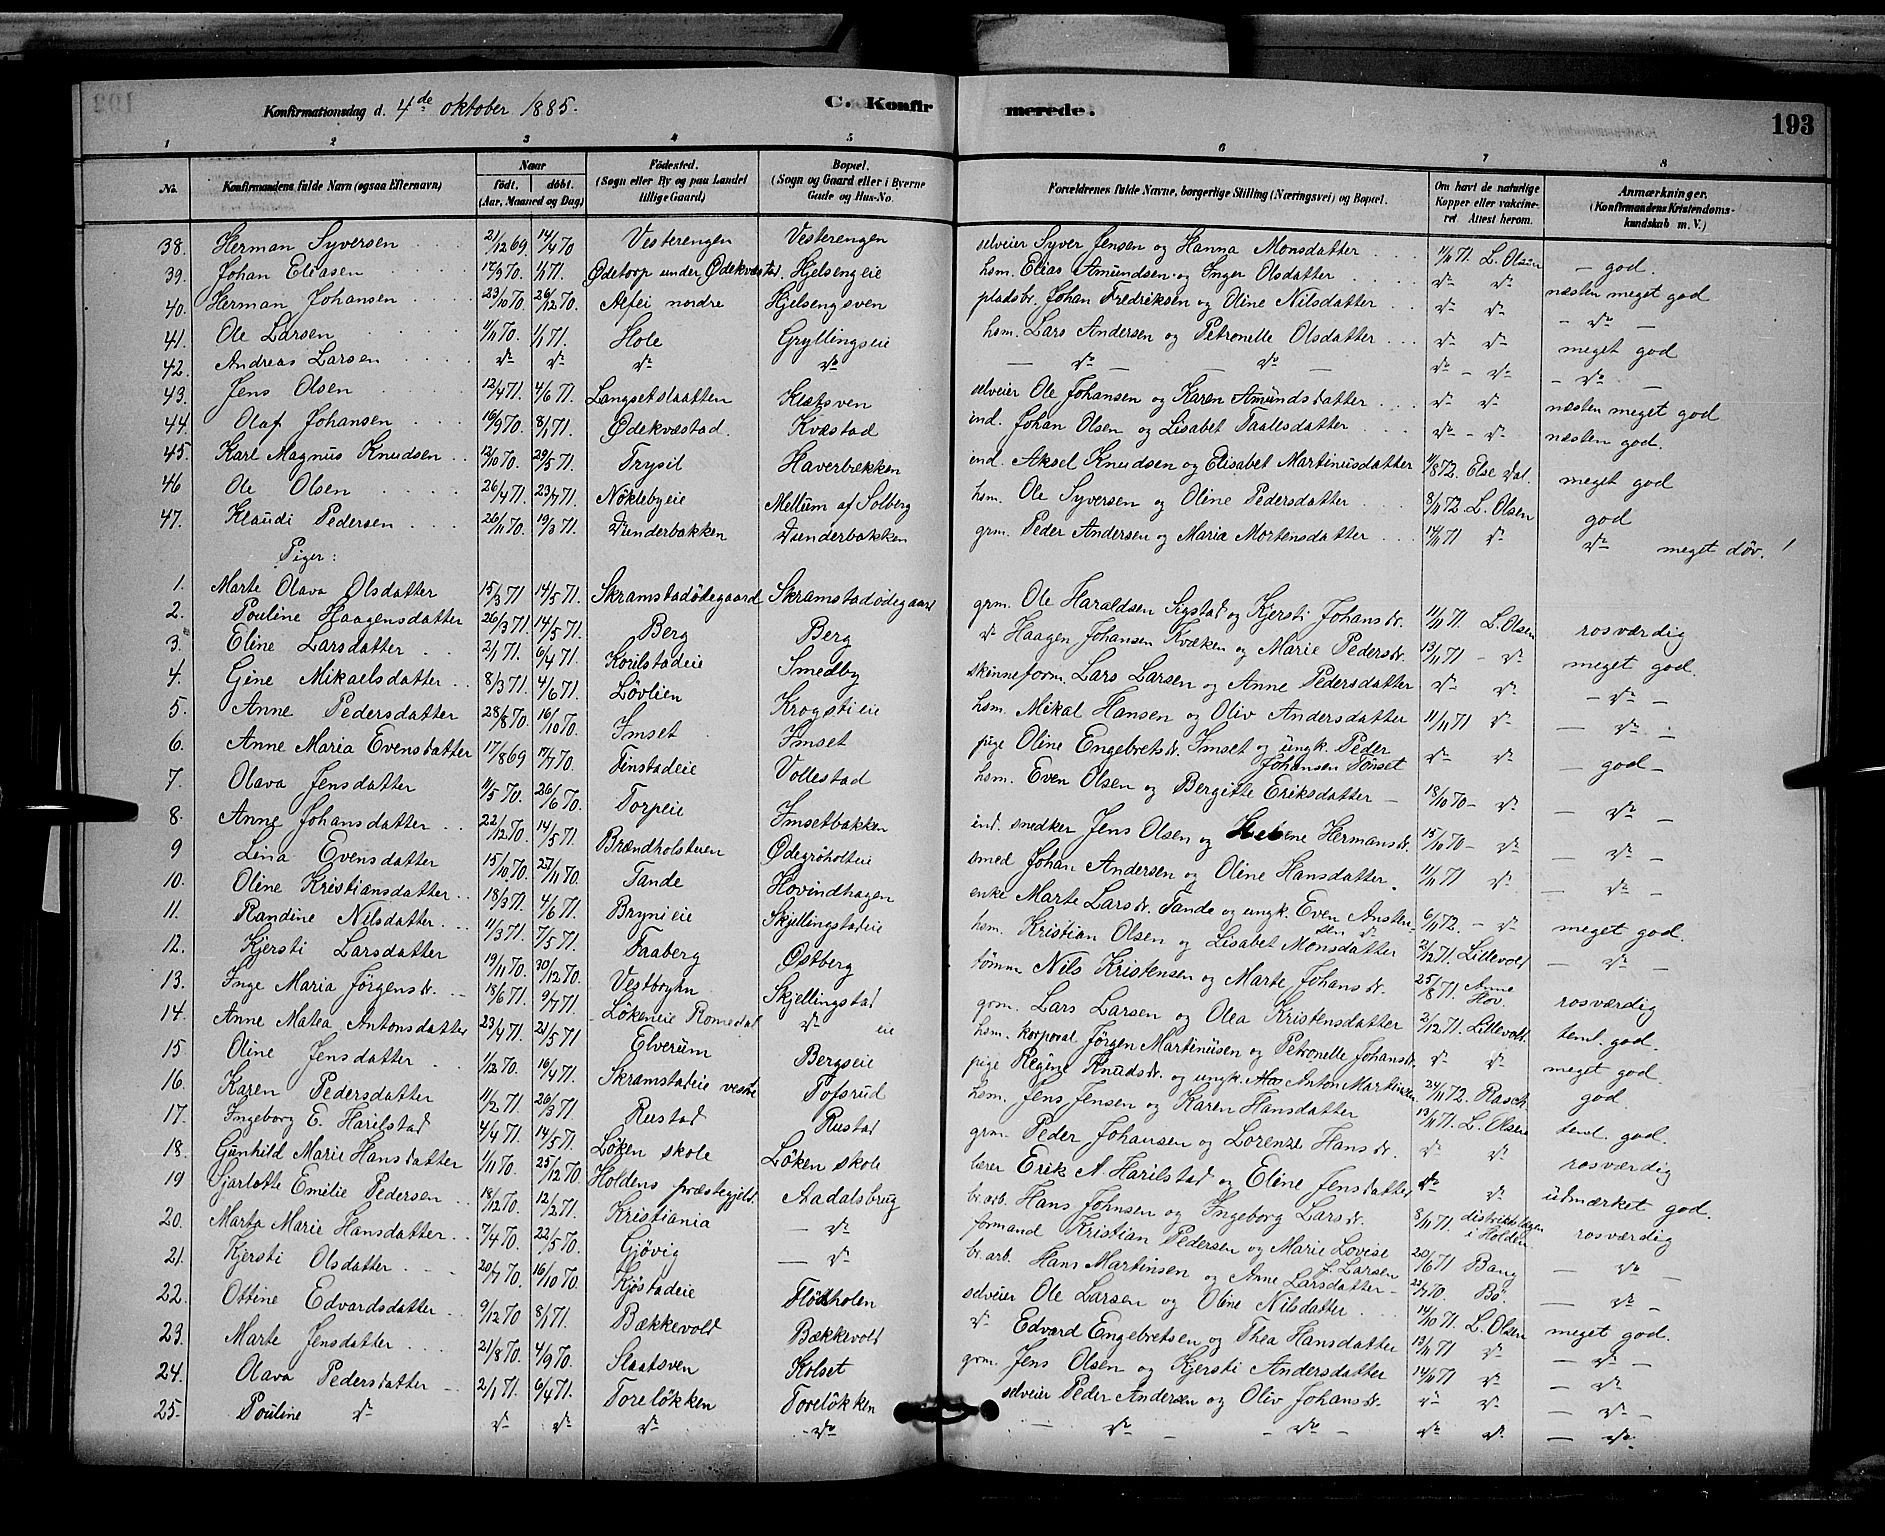 192
Konfirmationsdag d. 4de oktober 1885.
C. Konfirmerede.
193
1 2 3 4 5 6 7 8
No. Konfirmandens fulde Navn (ogsaa Efternavn) Naar født. døbt. (Aar, Maaned og Dag) Fødested. (Sogn eller By og paa Landet tillige Gaard) Bopæl. (Sogn og Gaard eller i Byerne Gade og Hus-No. Forældrenes fulde Navne, borgerlige Stilling (Næringsvei) og Bopæl. Om havt de naturlige Kopper eller vakcineret Attest herom. Anmærkninger. (Konfirmandens Kristendomskundskab m. V.)
38. Herman Syversen 21/12 69 14/4 70 Vesterengen Vesterengen selveier Syver Jensen og Hanna Monsdatter 11/11 71 L. Olsen – god.
39. Johan Eliasen 17/3 70. 1/1 71. Ødetorp under Ødekvæstad. Hjelsengeie hsm. Elias Amundsen og Inger Olsdatter do do næsten meget god
40. Herman Johansen 23/10 70. 26/12 70. Alfei nordre Hjelsengsven pladsbr. Johan Fredriksen og Oline Nilsdatter do do – do –
41. Ole Larsen 11/11 70. 1/1 71. Hole Gryllingseie hsm. Lars Andersen og Petronelle Olsdatter do do meget god
42. Andreas Larsen do do do do – do – do – do – do – do –
43. Jens Olsen 12/4 71. 4/6 71. Langsetslaatten Klætsven selveier Ole Johansen og Karen Amundsdatter do do næsten meget god
44. Olaf Johansen 16/9 70. 8/1 71. Ødekvæstad. Kvæstad ind. Johan Olsen og Lisabet Taallesdatter do – do næsten god.
45. Karl Magnus Knudsen 12/10 70. 29/5 71. Trysil Haverbækken ind. Aksel Knudsen og Elisabet Martinusdatter 11/8 72. Else Dal. meget god
46 Ole Olsen 26/4 71. 23/7 71. Nøklebyeie Mellum af Solberg hsm. Ole Syversen og Oline Pedersdatter 8/11 72 L. Olsen god
47. Klaudi Pedersen 26/11 70. 19/3 71. Dunderbakken Dunderbakken grm. Peder Andersen og Maria Mortensdatter 14/11 71 do do meget döv. !
Piger:
1. Marte Olava Olsdatter 15/3 71 14/5 71. Skramstadödegaard Skramstadödegaard grm. Ole Haraldsen Sigstad og Kjersti Johansdr. 11/11 71 L. Olsen rosværdig
2. Pouline Haagensdatter 26/3 71. 14/5 71. Berg Berg do Haagen Johansen Kvæken og Marie Pedersdr. 13/11 71 – do meget god.
3. Eline Larsdatter 2/1 71. 6/4 71. Korilstadeie Smedby skinneform. Lars Larsen og Anne Pedersdatter do do – do –
4. Gine Mikaelsdatter 8/3 71. 4/6 71. Lövlien Krogstieie hsm. Mikal Hansen og Oliv Andersdatter 11/11 71 do – do –
5. Anne Pedersdatter 28/8 70. 16/10 70. Imset Imset pige Oline Engebretsdr. Imset og ungk. Peder Johansen Tönset do do – god –
6. Anne Maria Evensdatter 17/8 69 17/7 70. Finstadeie Vollestad hsm. Even Olsen og Bergitte Eriksdatter – 18/10 70 – do – do –
7. Olava Jensdatter 11/5 70. 26/6 70. Torpeie Imsetbakken ind. snedker Jens Olsen og Helene Hermansdr. 15/10 70 – do – do –
8. Anne Johansdatter 22/12 70. 14/5 71. Brændholsteien Ödegröholteie smed Johan Andersen og Oline Hansdatter. 11/11 71 do – do –
9 Lina Evensdatter 15/10 70. 27/11 70. Tande Hovindhagen enke Marte Larsdr. Tande og ungk. Even Anstensen do 6/11 72. – do meget god.
10. Oline Kristiansdatter 18/3 71. 4/6 71. Brynieie Skjellingstadeie hsm. Kristian Olsen og Lisabet Monsdatter 2/12 71. Lillevold – do –
11. Randine Nilsdatter 11/3 71. 7/5 71. Faaberg Östberg tömm. Nils Kristensen og Marte Johansdr. 25/8 71. Anne Hov. rosværdig
12. Kjersti Larsdatter 19/11 70. 30/12 70. Vestbyhn Skjellingstad grm. Lars Larsen og Olea Kristensdatter 2/12 71. Lillevold. teml. god.
13. Inge Maria Jörgensdr. 18/6 71. 9/7 71. Lökeneie Romedal do eie hsm. korporal Jörgen Martinusen og Petronelle Johansdr. do do meget god.
14. Anne Matea Antonsdatter 23/4 71. 21/5 71. Elverum Bergseie pige Regine Knudsdr. og ungk. Anton Martinsen 24/11 72. Rasch god.
15 Oline Jensdatter 1/12 70. 16/4 71. Skramstadeie vestre Pofsrud hsm. Jens Jensen og Karen Hansdatter 13/11 71. L. Olsen teml. god.
16. Karen Pedersdatter 11/2 71. 26/3 71. Rustad Rustad grm. Peder Johansen og Lorenze Hansdr. do do rosværdig
17. Ingeborg E. Harilstad 4/4 71. 14/5 71. Löken skole Löken skole lærer Erik A. Harilstad og Eline Jensdatter do do udmærket god.
18. Gunhild Marie Hansdatter 1/11 70. 25/12 70. Holdens præstegjeld. Aadalsbrug br. arb. Hans Johnsen og Ingeborg Larsdr. 8/11 71. distriktslægen i Holden. rosværdig
19 Sjarlotte Emilie Pedersen 18/12 70. 12/2 71. Kristiania – do formand Kristian Pedersen og Marie Lovise J. Larsen 20/6 71 Bang – do –
20. Marta Marie Hansdatter 7/4 70. 22/5 70. Gjövig – do br. arb. Hans Martinsen og Anne Larsdatter – 22/7 70. Bö. – do –
21. Kjersti Olsdatter 20/7 70. 16/10 70. Kjöstadeie Flödholen selveier Ole Larsen og Oline Nilsdatter 14/10 71. L. Olsen meget god.
22. Ottine Edvardsdatter 9/12 70 8/1 71. Bækkevold Bækkevold do Edvard Engebretsen og Thea Hansdatter 13/11 71 do – do –
23. Marte Jensdatter 21/8 70. 4/9 70. Slaatsven Kolset grm. Jens Olsen og Kjersti Andersdatter 14/11 71 do – do –
24. Olava Pedersdatter 2/1 71. 6/4 71. Torelökken Torelökken selveier Peder Andersen og Oliv Johansdr. do do – do –
25. Pouline do do do do do – do – do – do do – do